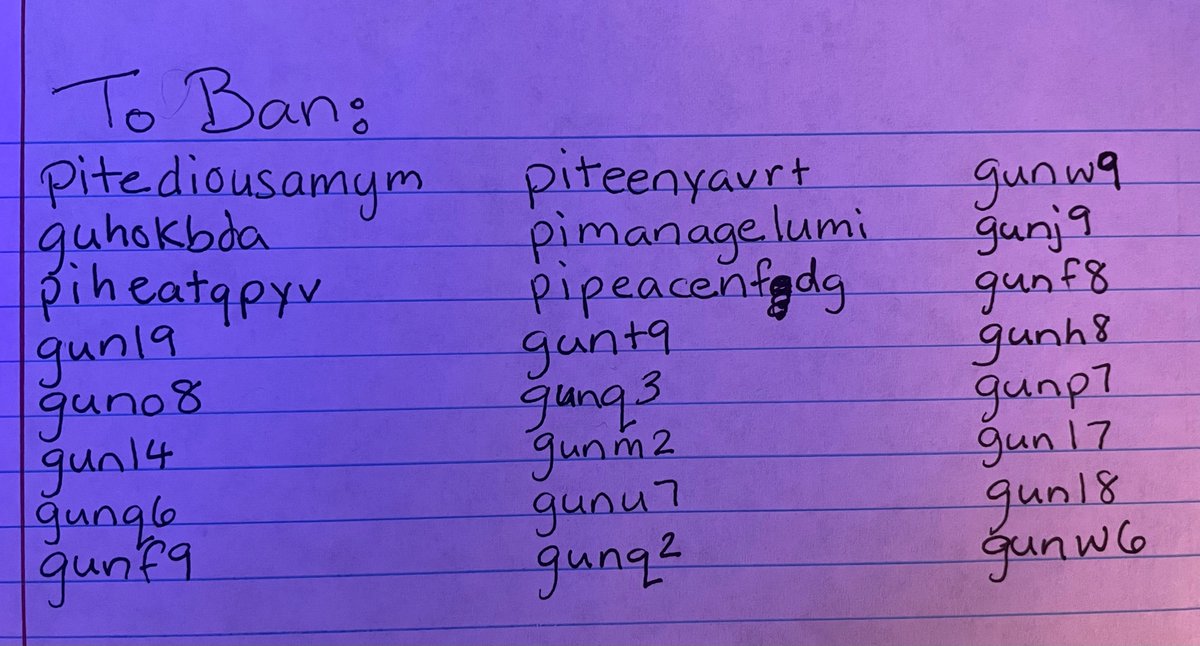 To Ban:
pitediousamym piteenyavrt gunw9
guhokbda pimanagelumi gunj9
piheatqpyv pipeacenfgdg gunf8
gunl9 gunt9 gunh8
guno8 gunq3 gunp7
gunl4 gunm2 gunl7
gunq6 gunu7 gunl8
gunf9 gunq2 gunw6